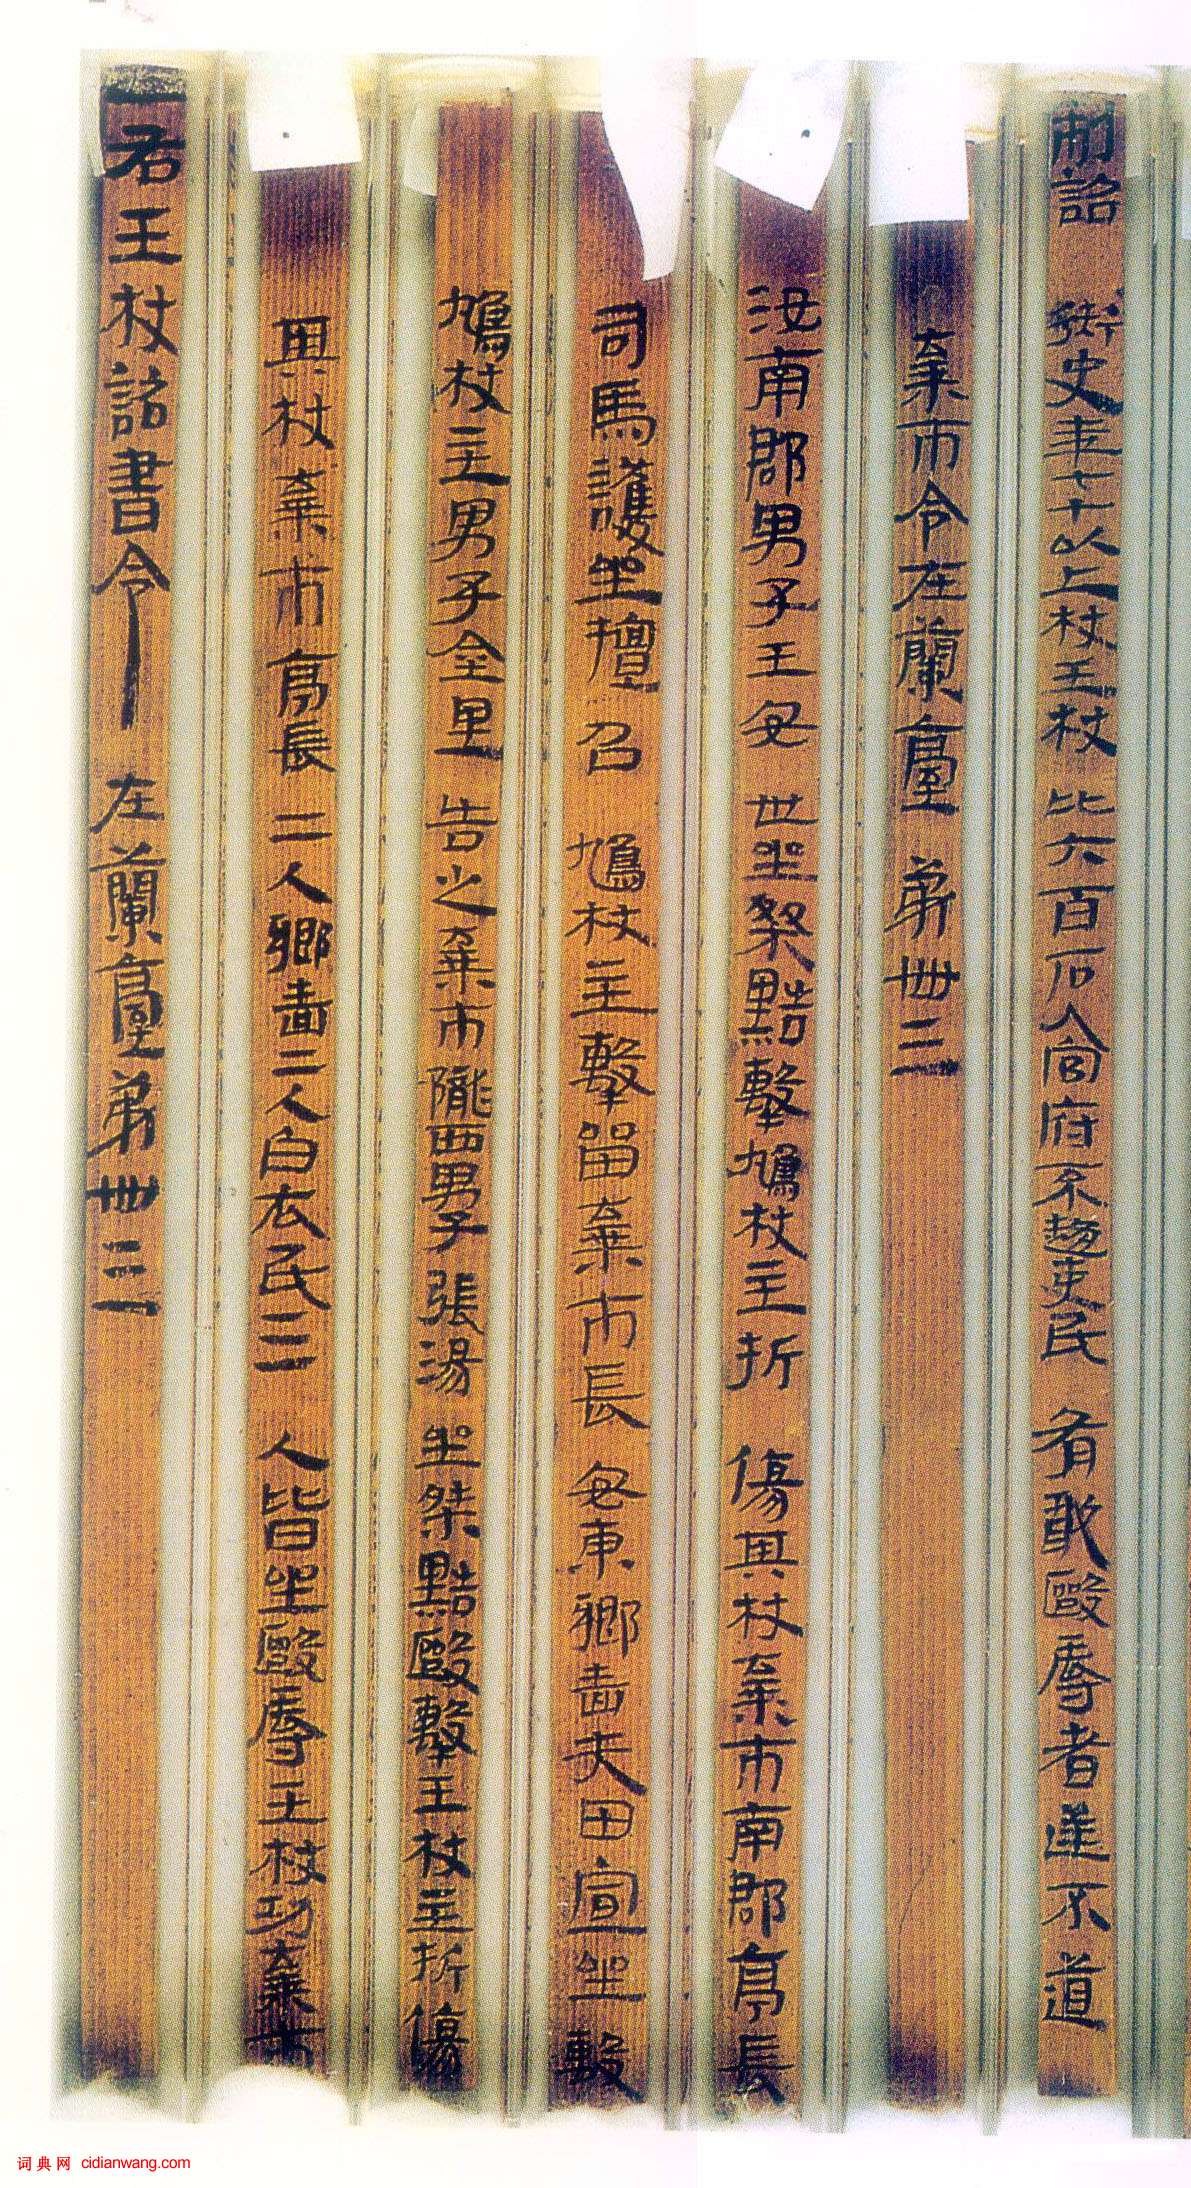 制詔 御史年七十以上杖王杖比六百石入官府不趨吏民有敢毆辱者逆不道
棄市令在蘭臺第卌三
汝南郡男子王安世坐桀黠擊鳩杖主折傷其杖棄市南郡亭長
司馬護坐擅召鳩杖主擊留棄市長安東鄉嗇夫田宣坐毄
鳩杖主男子金里告之棄市隴西男子張湯坐桀黠毆擊王杖主折傷
其杖棄市亭長二人鄉嗇二人白衣民三人皆坐毆辱王杖功棄市
右王杖詔書令 在蘭臺第卌三
词典网 cidianwang.com